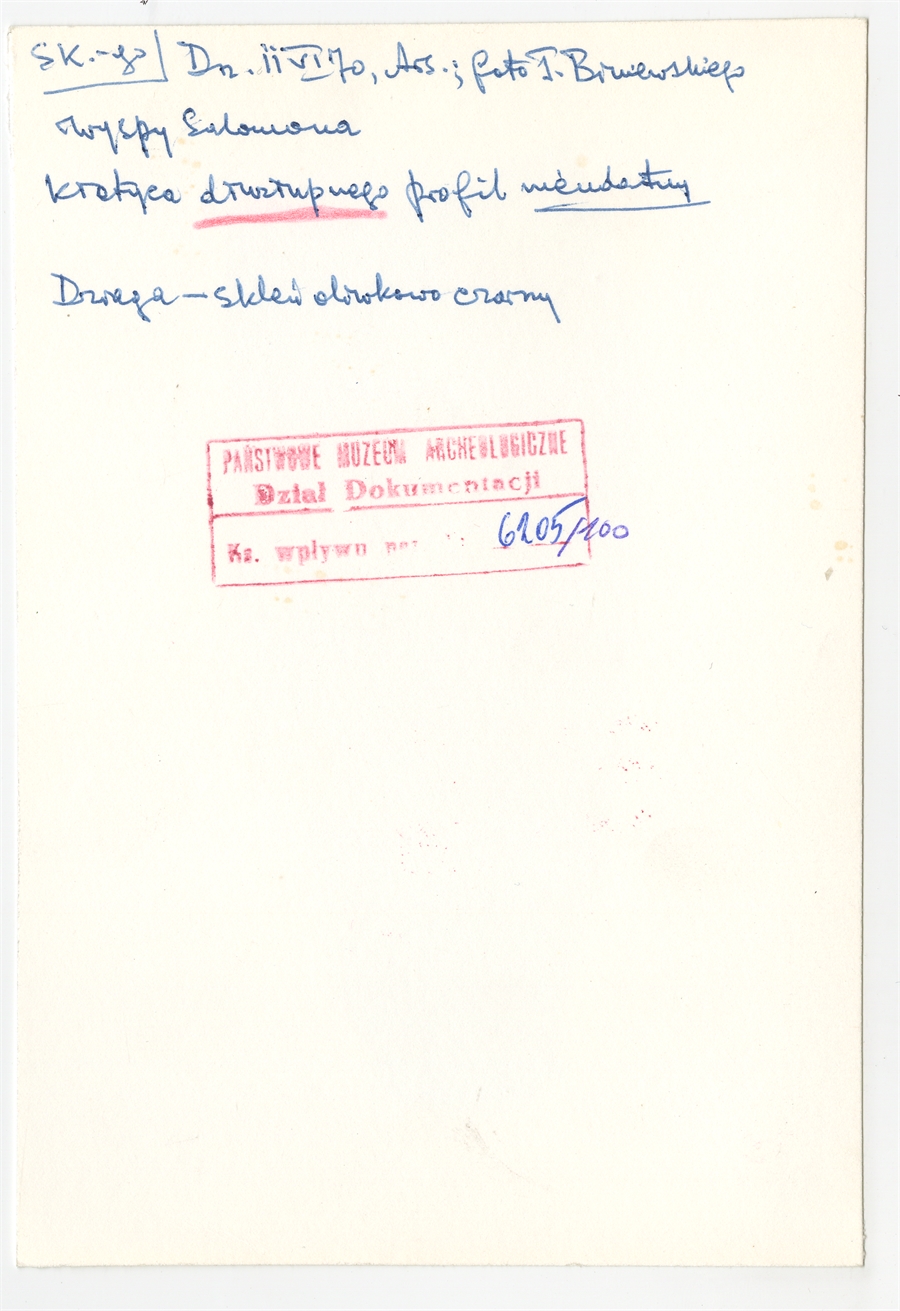 SK.-go Dn. 11 VI 70, Ars.; foto T. Biniewskiego
Wyspy Salomona
Kratyca dłużupnego profil nieudatny
Dzraga – skleń oliwkowo czarny
PAŃSTWOWE MUZEUM ARCHEOLOGICZNE
Dział Dokumentacji
Ks. wpływu 6205/100